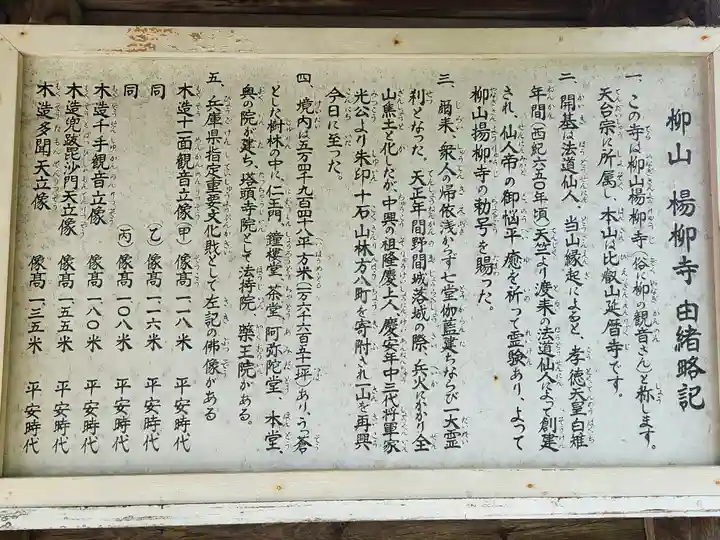 柳山 楊柳寺 由緒略記
一、この寺は柳山楊柳寺(俗に柳の観音さん)と称します。
天台宗に所属し、本山は比叡山延暦寺です。
二、開基は法道仙人 当山縁起によると、孝徳天皇白雉
年間(西紀六五〇年頃)天竺より渡来の法道仙人によって創建
され、仙人帝の御悩平癒を祈って霊験あり、よって
柳山楊柳寺の勅号を賜った。
三、爾来、衆人の帰依浅からず七堂伽藍建ちならび一大霊
刹となった。天正年間野間城落城の際、兵火にかかり全
山焦土と化したが、中興の祖隆慶上人、慶安年中三代将軍家
光公より朱印十石山林方八町を寄附され一山を再興
今日に至った。
四、境内は五万四千九百四十八平方米(一万六千六百五十二坪)あり、うつ蒼
とした樹林の中に仁王門 鐘楼堂 茶堂 阿弥陀堂 本堂
奥の院が建ち、塔頭寺院として法持院 薬王院がある。
五、兵庫県指定重要文化財として左記の佛像がある
木造十一面観音立像(甲) 像高 一、一八米 平安時代
同 (乙) 像高 一、一六米 平安時代
同 (丙) 像高 一、〇八米 平安時代
木造千手観音立像 像高 一、八〇米 平安時代
木造兜跋毘沙門天立像 像高 一、五五米 平安時代
木造多聞天立像 像高 一、三五米 平安時代